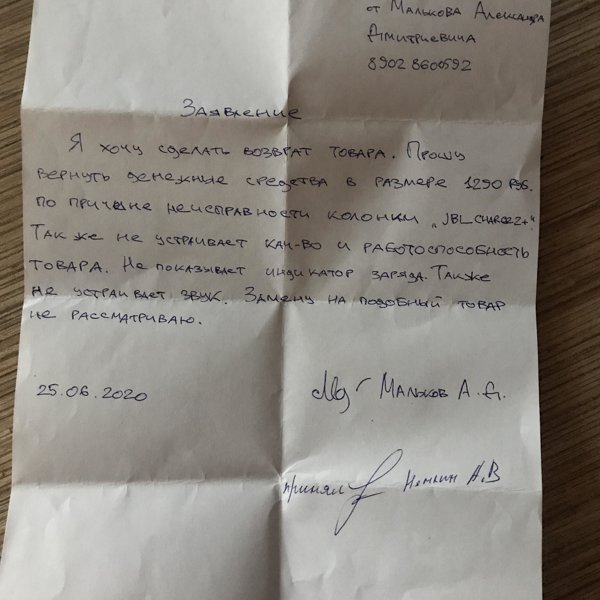 от Малькова Александра
Дмитриевича
8902 8600592
Заявление
Я хочу сделать возврат товара. Прошу
вернуть денежные средства в размере 1290 руб.
по причине неисправности колонки "JBL CHARGE2+".
Так же не устраивает кач-во и работоспособность
товара. Не показывает индикатор заряда. Также
не устраивает звук. Замену на подобный товар
не рассматриваю.
25.06.2020 Мальков А.Д.
принял А.В